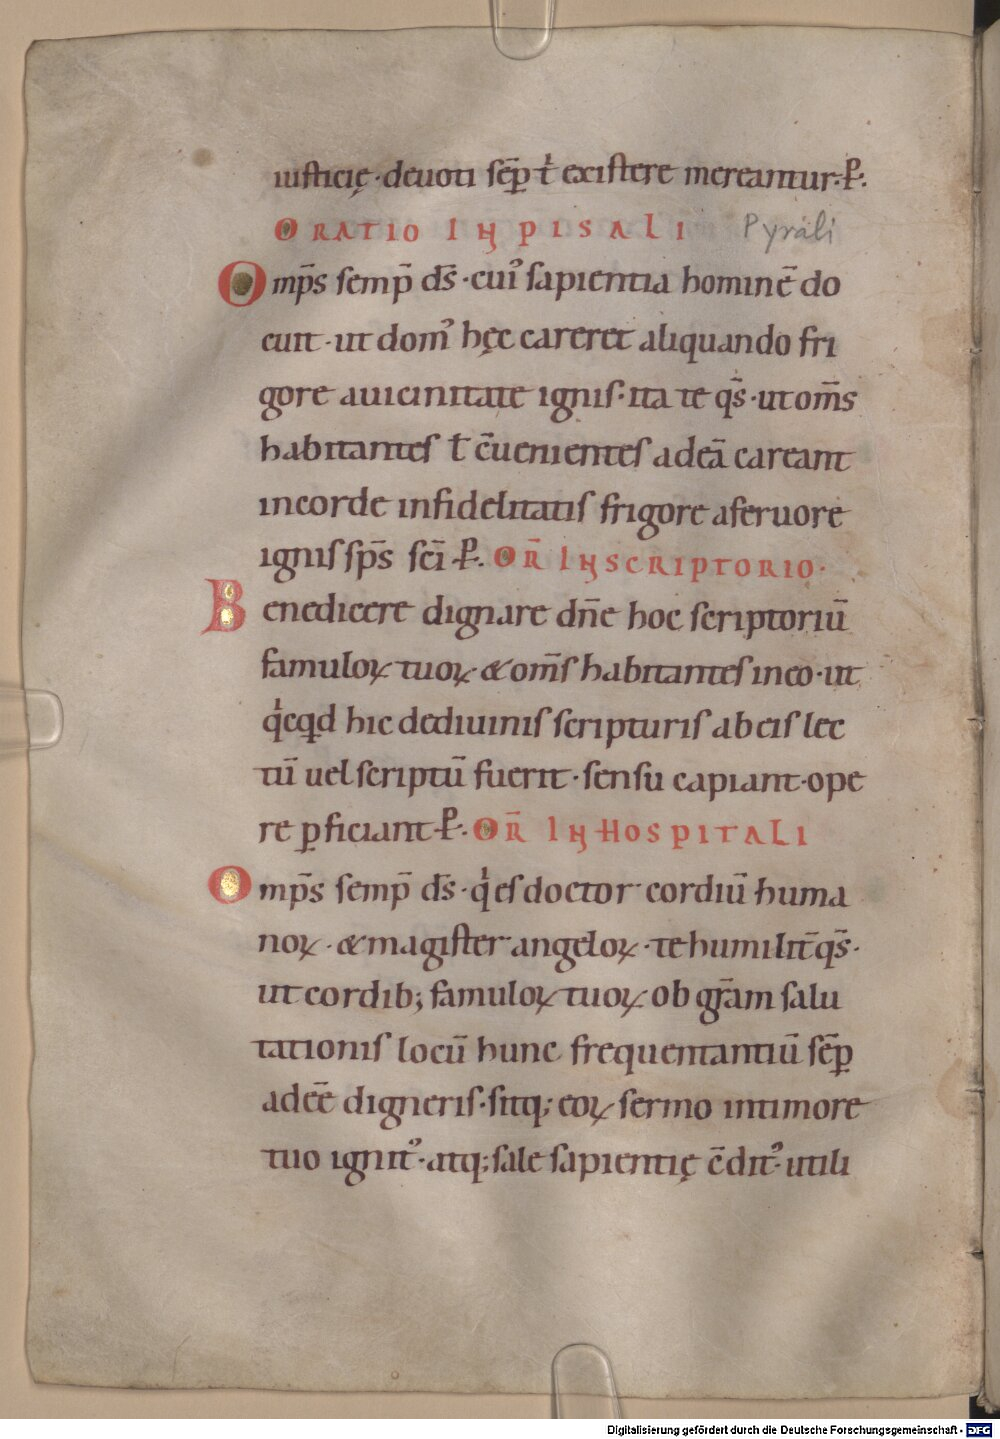 iusticię·deuoti sēp t̄ existere mereantur·P̄·
ORATIO IN PISALI Pyrali
Omp̄s semp̄ d̄s·cui᾿ sapientia hominē do
cuit·ut dom᾿ hęc careret aliquando fri
gore auicinitate ignis·ita te q̄s·ut om̄s
habitantes t̄ c̄uenientes adeā careant
incorde infidelitatis frigore aferuore
ignis sp̄s sc̄i·P̄· OR̄ INSCRIPTORIO·
Benedicere dignare dn̄e hoc scriptoriū
famuloꝝ tuoꝝ·&om̄s habitantes ineo·ut
qͥcqd hic dediuinis scripturis ab eis lec
tū uel scriptū fuerit·sensu capiant·ope
re ꝑficiant·P̄· OR̄ INHOSPITALI
Omp̄s semp̄ d̄s·qͥ es doctor cordiū huma
noꝝ·&magister angeloꝝ·te humilit̄ q̄s·
ut cordib; famuloꝝ tuoꝝ ob gr̄am salu
tationis locū hunc frequentantiū sēp
adeē digneris·sitq; eoꝝ sermo intimore
tuo ignit᾿·atq; sale sapientię c̄dit᾿·utili
Digitalisierung gefördert durch die Deutsche Forschungsgemeinschaft - DFG